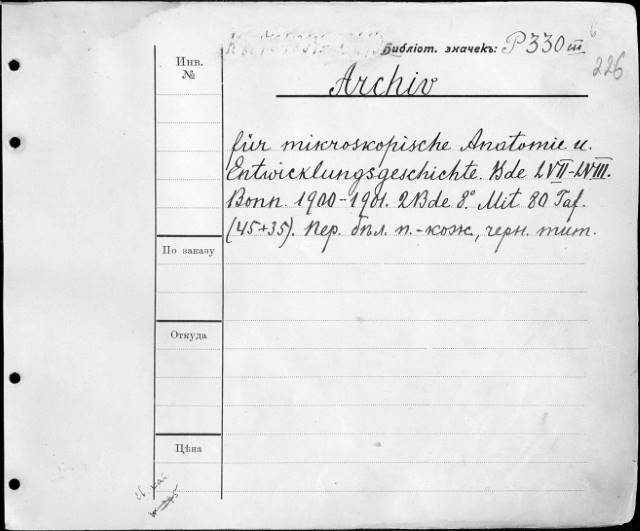 Библіот. значекъ: P330 III 6
226
Инв. №
Archiv
für mikroskopische Anatomie u.
Entwicklungsgeschichte. Bde LVII-LVIII.
Bonn. 1900-1901. 2 Bde 8°. Mit 80 Taf.
(45+35). Пер. бпл. п.-кож., черн. тит.
По заказу
Откуда
Цѣна